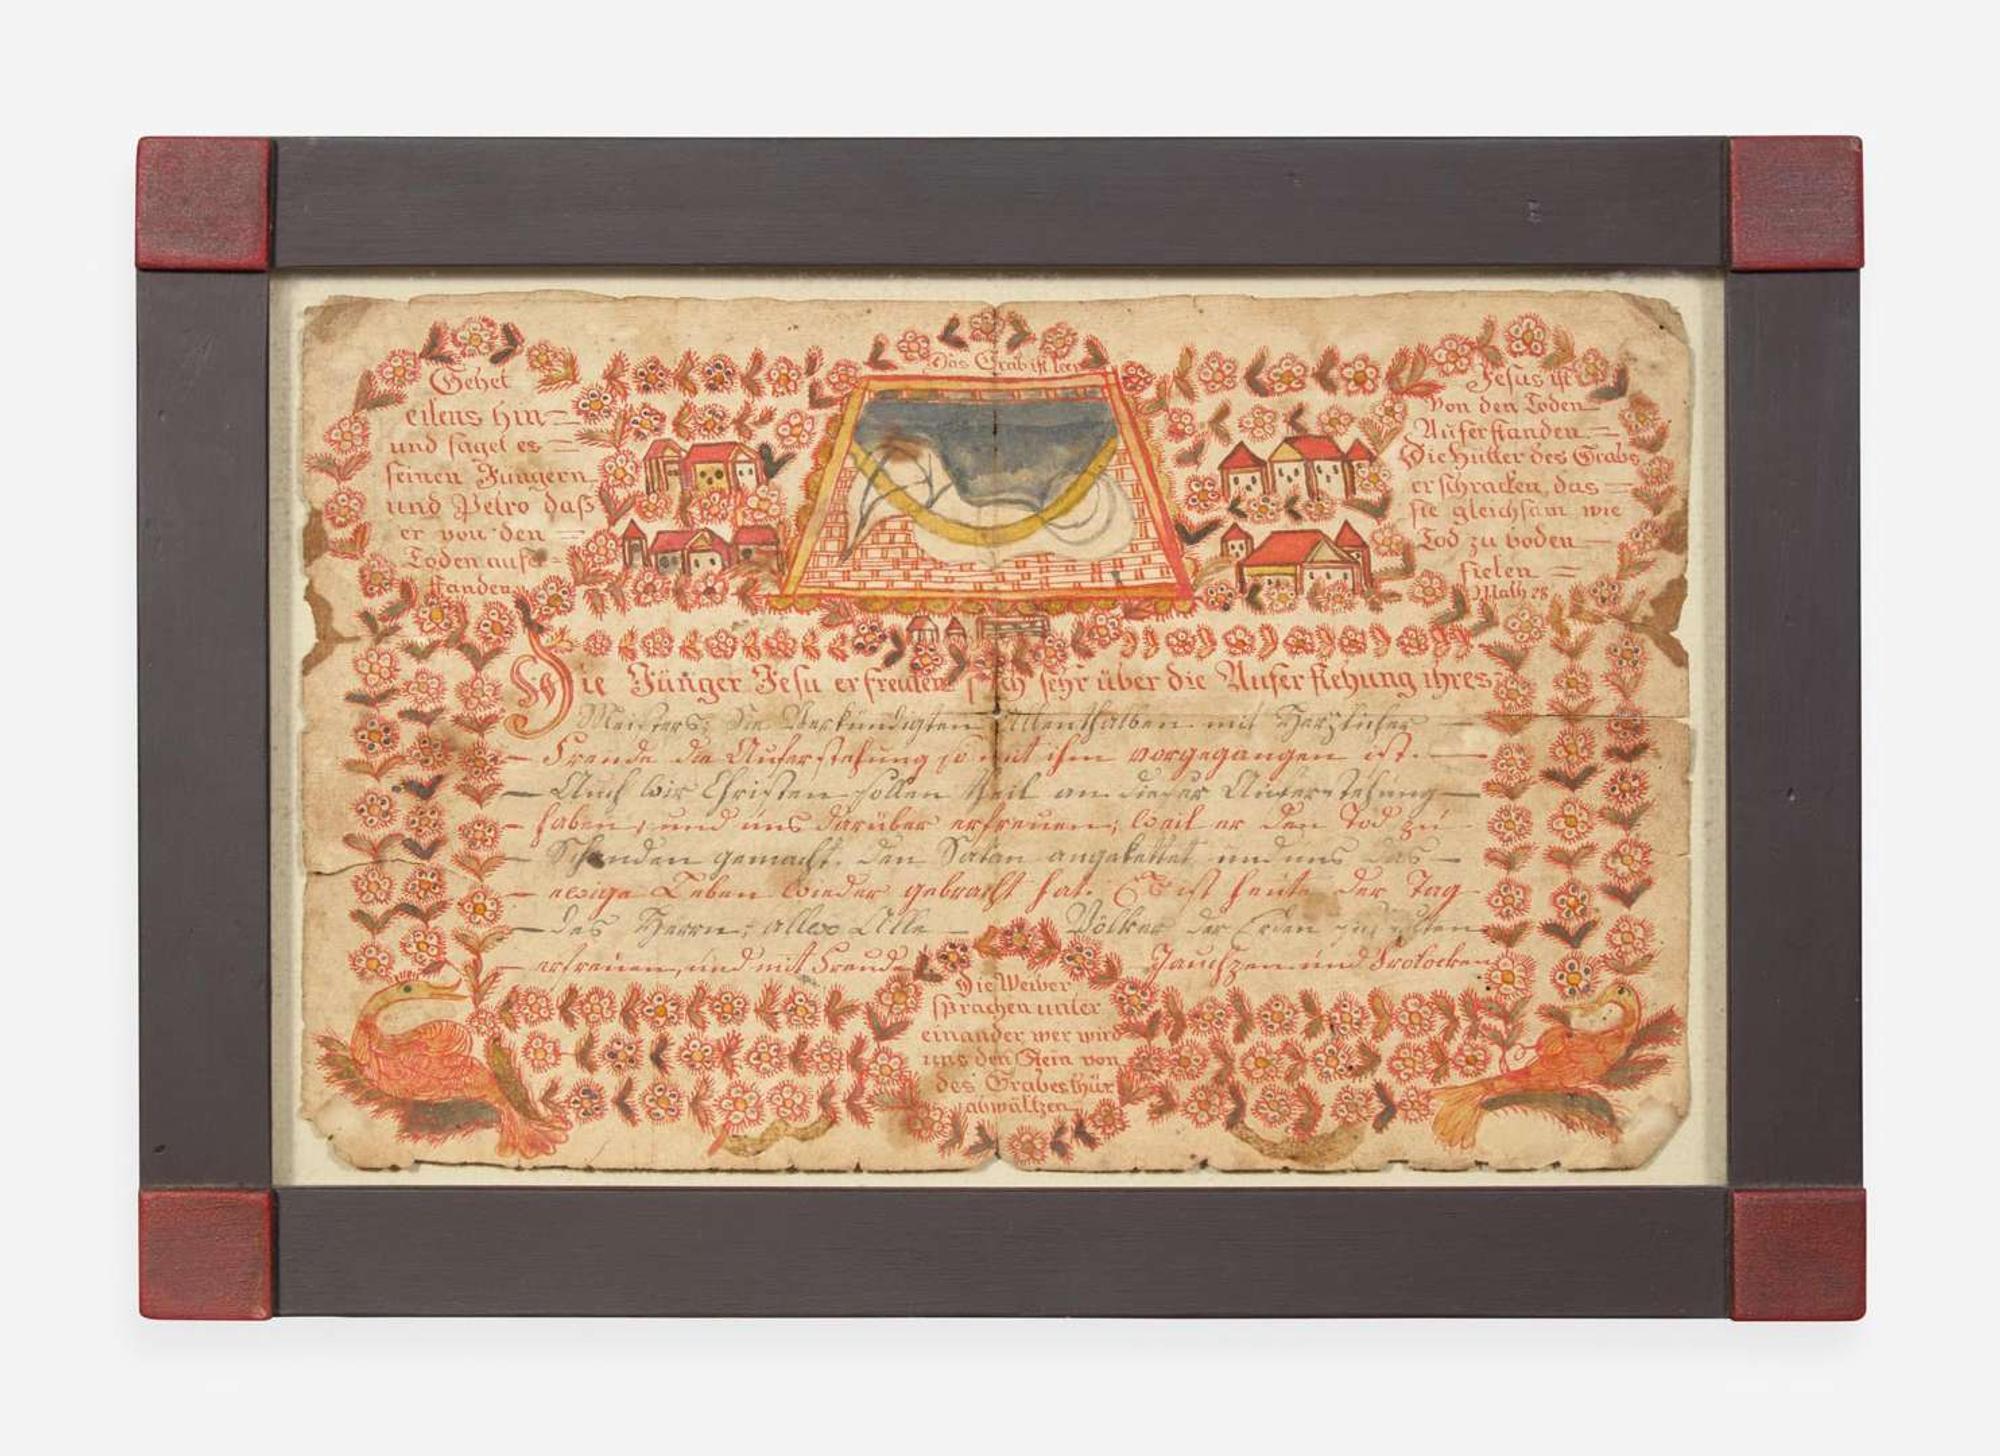 Das Grab ist leer
Gehet
eilens hin=
und saget es =
seinen Jüngern
und Petro daß
er von den =
Toden aufer=
standen
Jesus ist
von den Toden
Auferstanden =
Die Hütter des Grabs
erschracken, das =
sie gleichsam wie
Tod zu boden =
fielen =
Math 28
Die Jünger Jesu erfreuten sich sehr über die Aufer stehung ihres
Meisters; Sie Verkündigten Allenthalben mit Herzlicher —
Freude die Auferstehung so mit ihm vorgegangen ist. —
— Auch wir Christen sollen theil an dieser Auferstehung —
haben, und uns darüber erfreuen; weil er den Tod zu
— Schanden gemacht. den Satan angekettet und uns das —
— ewige Leben wieder gebracht hat. Es ist heute der Tag
— des Herrn; allwo Alle — Völker der Erden
— erfreuen, und mit Freude Jauchzen und Frolocken
Die Weiber
sprachen unter
einander wer wird
uns den Stein von
des Grabesthür
abwältzen